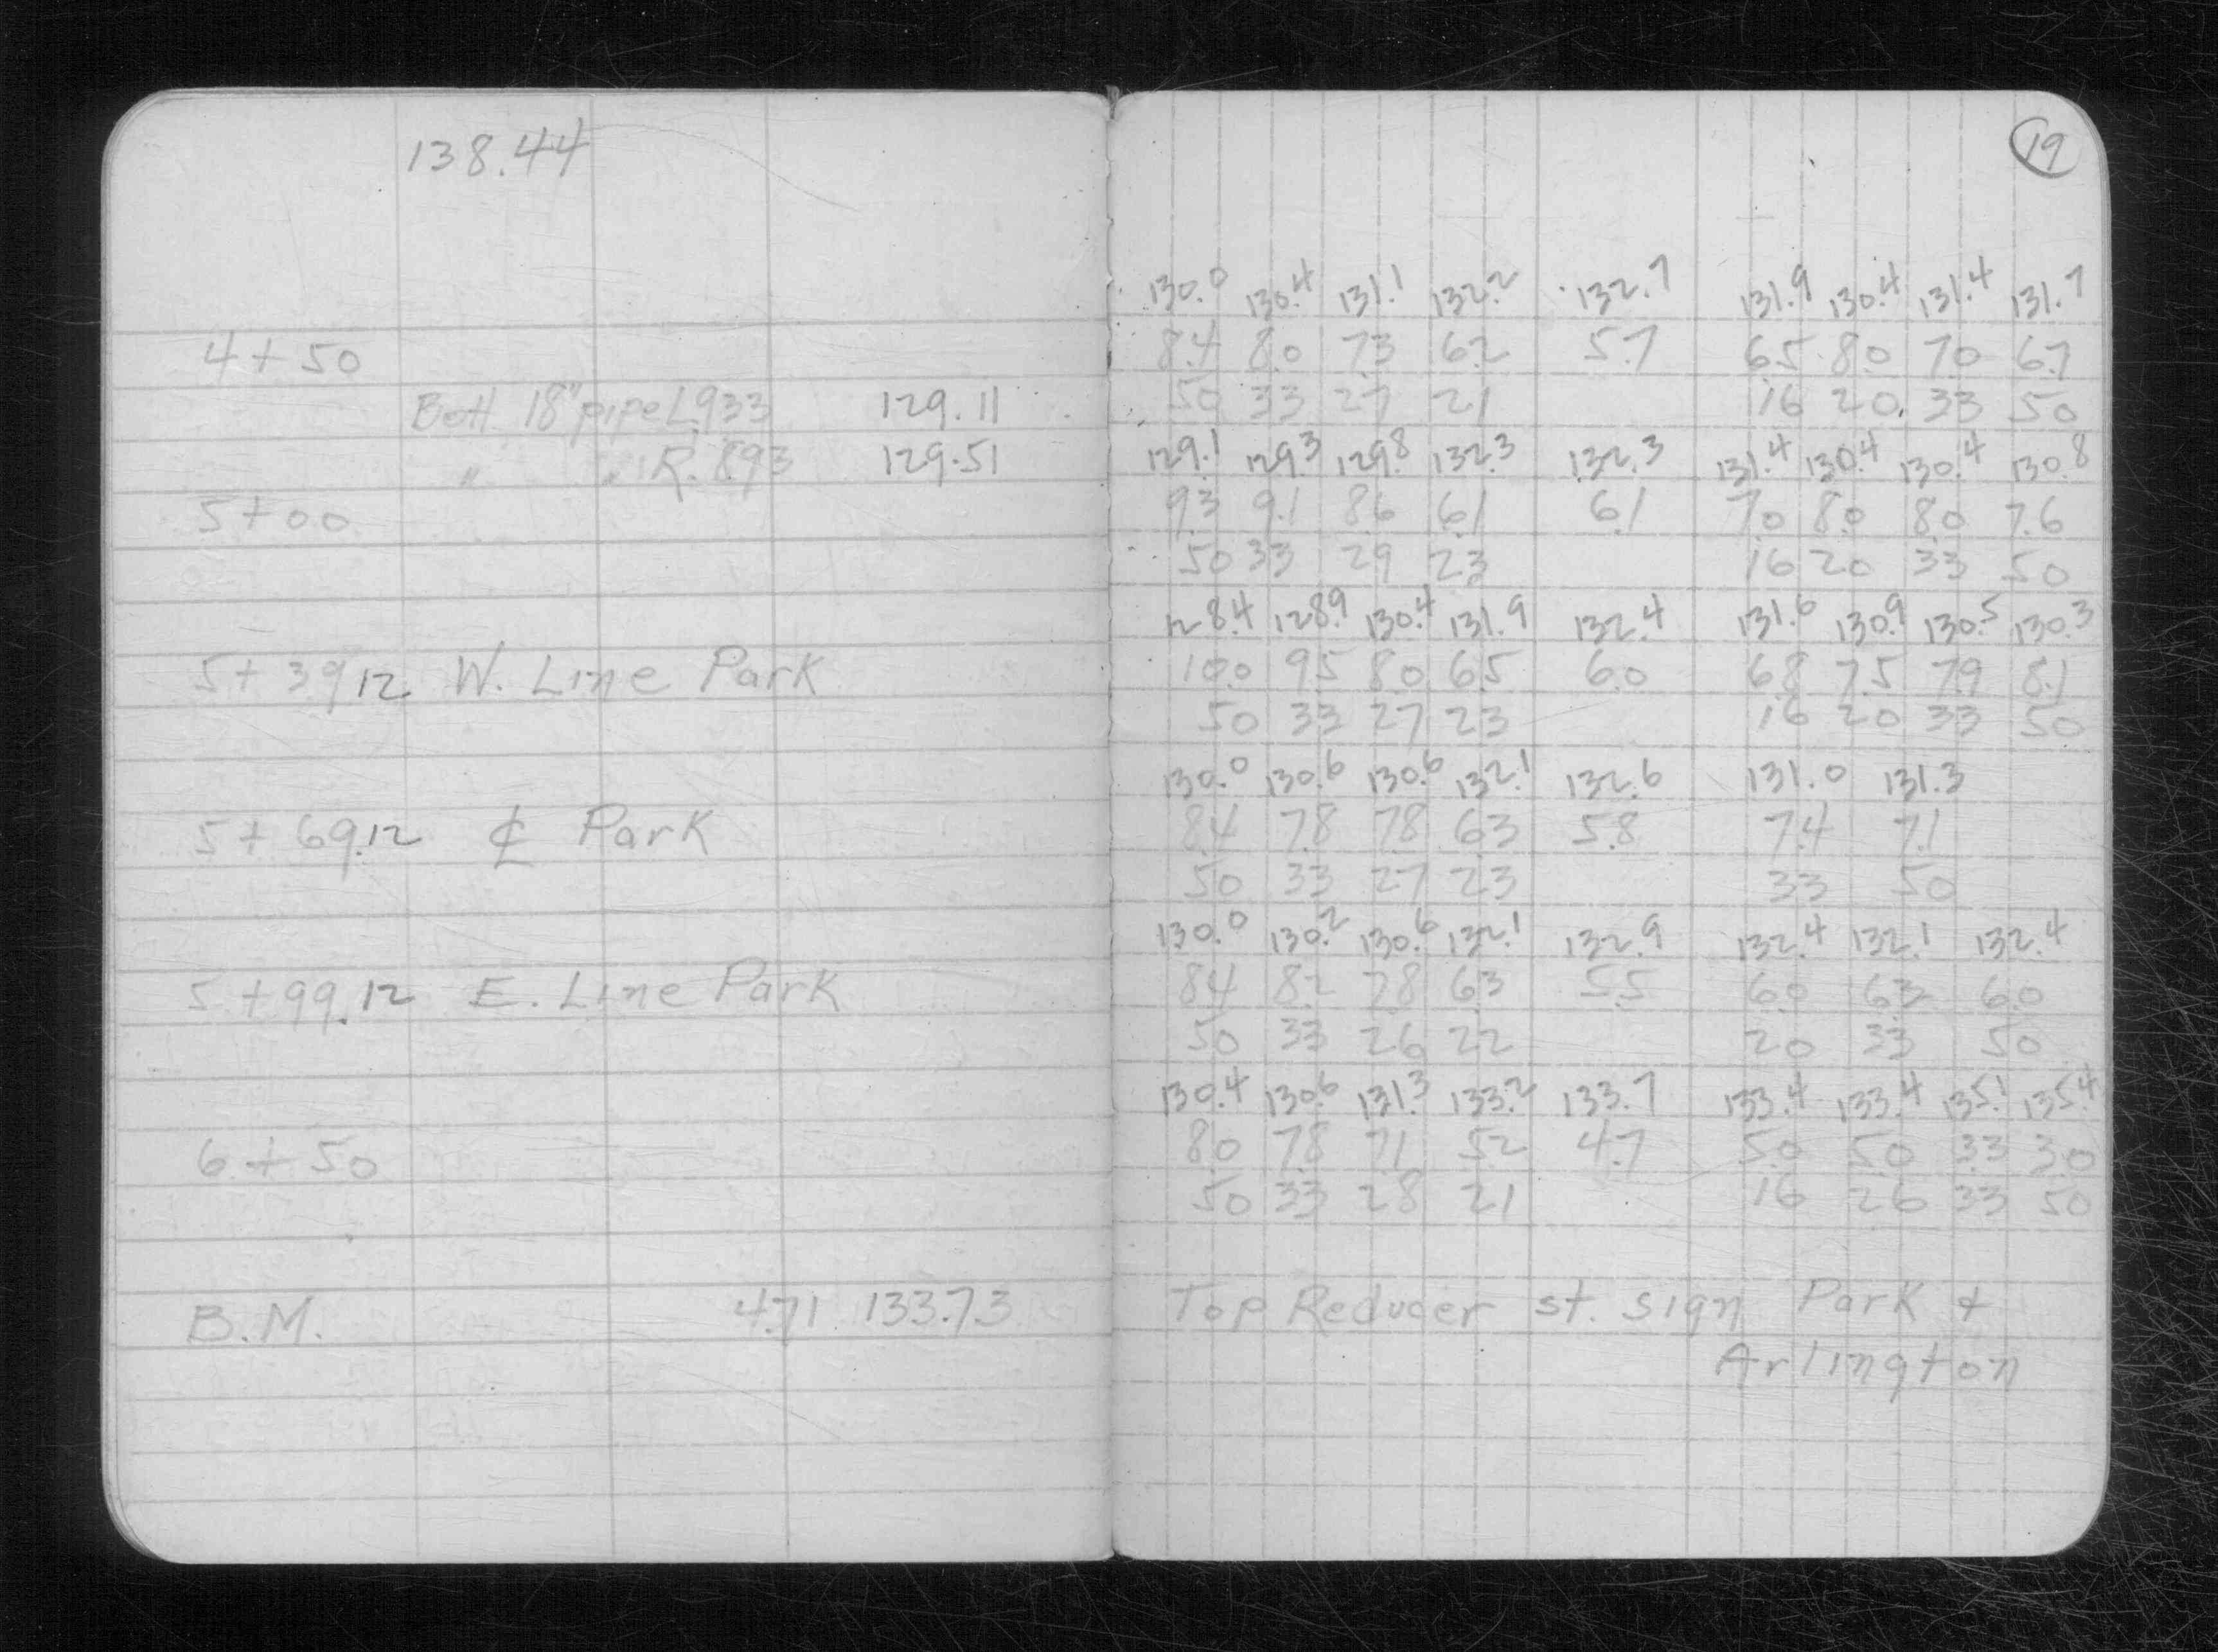 138.44
19
130.0 130.4 131.1 132.2 132.7 131.9 130.4 131.4 131.7
4+50 8.4 8.0 7.3 6.2 5.7 6.5 8.0 7.0 6.7
Bott 18" pipe L 9.33 129.11 50 33 27 21 16 20 33 50
" " R. 8.93 129.51 129.1 129.3 129.8 132.3 132.3 131.4 130.4 130.4 130.8
5+00 9.3 9.1 8.6 6.1 6.1 7.0 8.0 8.0 7.6
50 33 29 23 16 20 33 50
128.4 128.9 130.4 131.9 132.4 131.6 130.9 130.5 130.3
5+39.12 W. Line Park 10.0 9.5 8.0 6.5 6.0 6.8 7.5 7.9 8.1
50 33 27 23 16 20 33 50
130.0 130.6 130.6 132.1 132.6 131.0 131.3
5+69.12 ₵ Park 8.4 7.8 7.8 6.3 5.8 7.4 7.1
50 33 27 23 33 50
130.0 130.2 130.6 132.1 132.9 132.4 132.1 132.4
5+99.12 E. Line Park 8.4 8.2 7.8 6.3 5.5 6.0 6.3 6.0
50 33 26 22 20 33 50
130.4 130.6 131.3 133.2 133.7 133.4 133.4 135.1 135.4
6+50 8.0 7.8 7.1 5.2 4.7 5.0 5.0 3.3 3.0
50 33 28 21 16 26 33 50
B.M. 4.71 133.73 Top Reducer st. sign Park +
Arlington